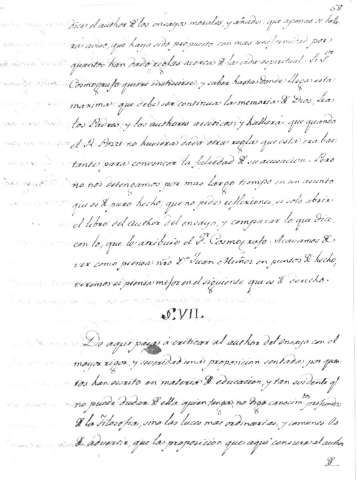 dice el author de los ensayos morales, y añade, que apenas se hallará aviso, que haya sido propuesto con mas uniformidad por
quantos han dado reglas acerca de la vida espiritual. Si Sr
Cosmografo quiere instruirse, y saber hasta donde llega esta
maxima, que debe ser continua la memoria de Dios, lea
los Padres, y los authores asceticos, y hallará, que quando
el P. Pozo no huviera dado otras reglas que esta, era bastante para convencer la falsedad de su acusacion. Pero
no nos detengamos por mas largo tiempo en un asunto
que es de puro hecho, que no pide reflexiones, si solo abrir
el libro del author del ensayo, y comparar lo que dice,
con lo, que le atribuye el Sr. Cosmografo. Acavamos de
ver como piensa nro Dn Juan Muñoz en puntos de hecho,
veremos si piensa mejor en el siguiente que es de derecho.
§. VII.
De aqui pasa à criticar al author del ensayo con el
mayor rigor, y severidad una proposicion sentada por quantos han escrito en materia de educacion, y tan evidente q.
no puede dudar de ella quien tenga, no digo conocimtos profundos
de la filosofia, sino las luces mas ordinarias, y comunes. Es
de advertir, que la proposicion que aqui censura al author